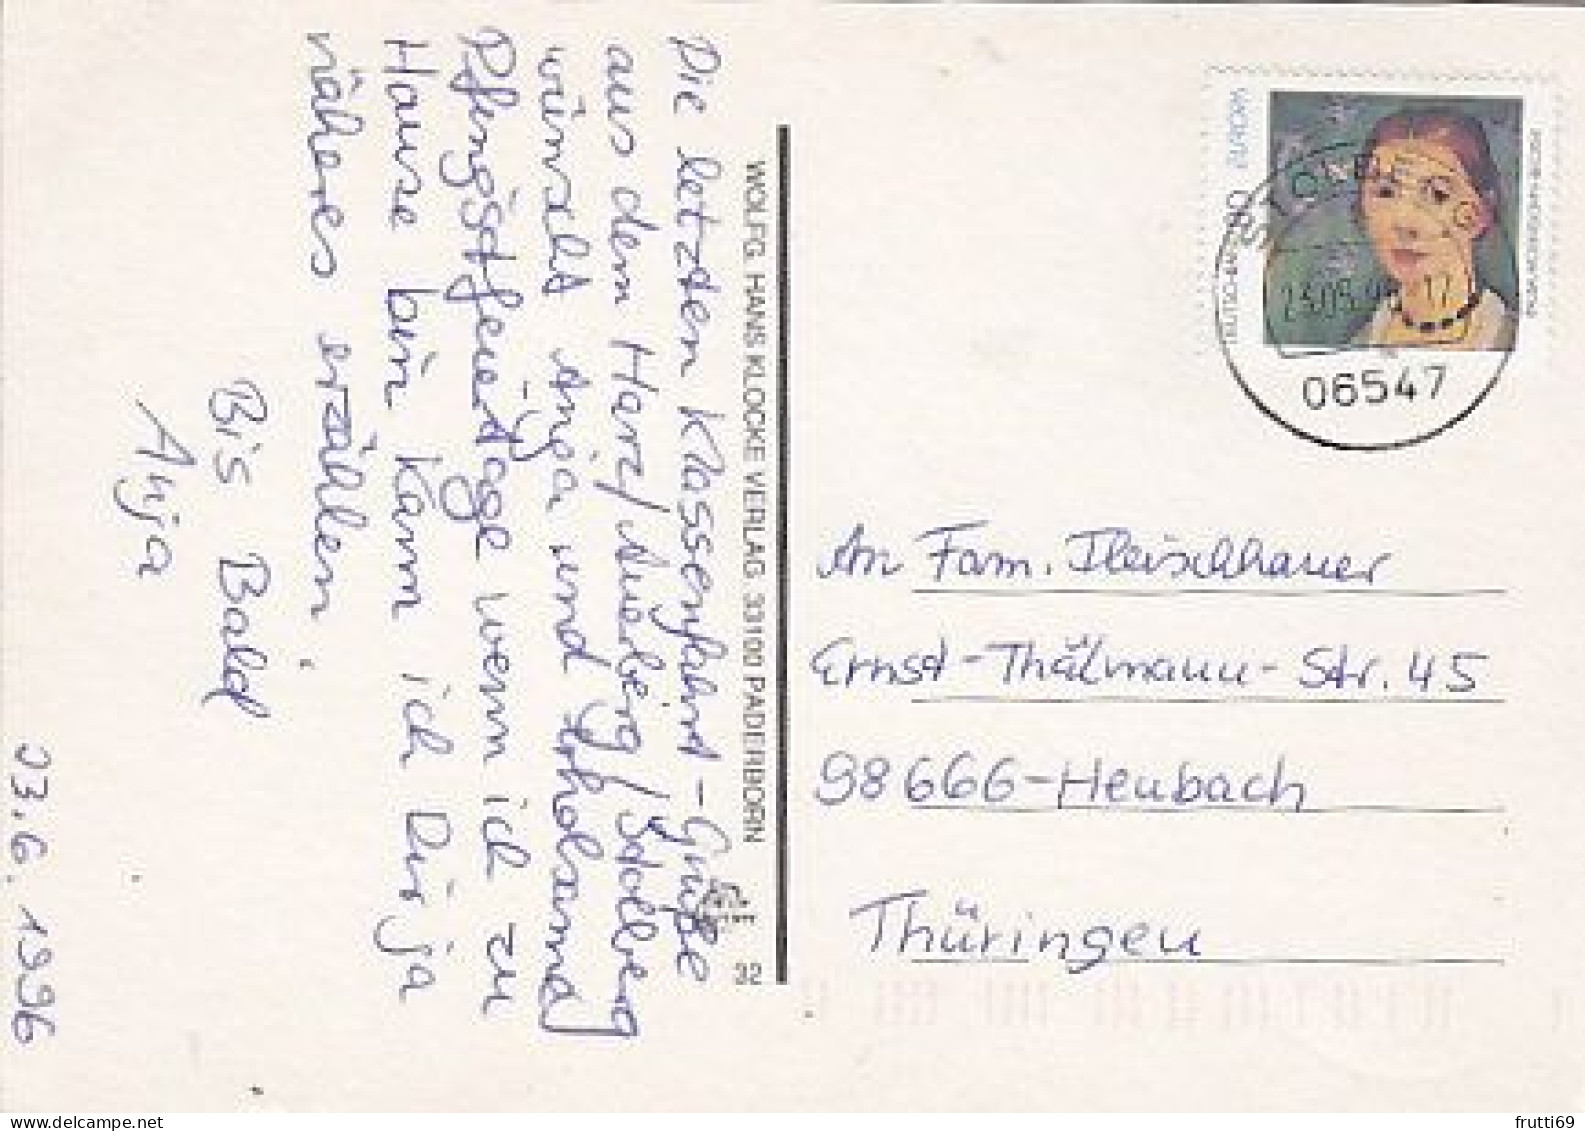 Die letzten Klassenfahrt-Grüße
aus dem Harz/Auerberg/Stolberg
wünscht Anja und erholsame
Pfingstfeiertage wenn ich zu
Hause bin kann ich Dir ja
näheres erzählen!
Bis Bald
Anja
03.6.1996
WOLFG. HANS KLOCKE VERLAG 33100 PADERBORN
32
EUROPA
80
STOLBERG
23.05.96-17
06547
An Fam. Fleischhauer
Ernst-Thälmann-Str. 45
98666-Heubach
Thüringen
frutti69